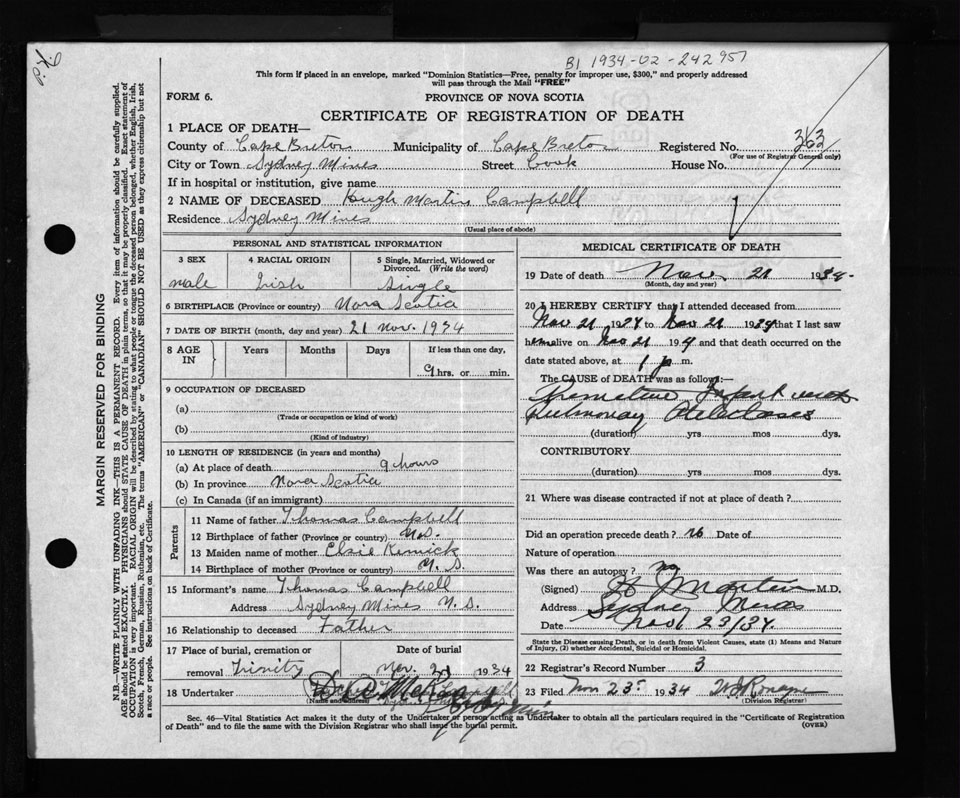 B1 1934-02-242957
This form if placed in an envelope, marked "Dominion Statistics—Free, penalty for improper use, $300," and properly addressed
will pass through the Mail "FREE"
FORM 6.
PROVINCE OF NOVA SCOTIA
CERTIFICATE OF REGISTRATION OF DEATH
1 PLACE OF DEATH—
County of Cape Breton Municipality of Cape Breton Registered No. 363
(For use of Registrar General only)
City or Town Sydney Mines Street Cook House No.
If in hospital or institution, give name
2 NAME OF DECEASED Hugh Martin Campbell
Residence Sydney Mines
(Usual place of abode)
PERSONAL AND STATISTICAL INFORMATION
3 SEX 4 RACIAL ORIGIN 5 Single, Married, Widowed or
Divorced. (Write the word)
male Irish Single
6 BIRTHPLACE (Province or country) Nova Scotia
7 DATE OF BIRTH (month, day and year) 21 Nov. 1934
8 AGE IN Years Months Days If less than one day,
9 hrs. or min.
9 OCCUPATION OF DECEASED
(a)
(Trade or occupation or kind of work)
(b)
(Kind of industry)
10 LENGTH OF RESIDENCE (in years and months)
(a) At place of death 9 hours
(b) In province Nova Scotia
(c) In Canada (if an immigrant)
Parents
11 Name of father Thomas Campbell
12 Birthplace of father (Province or country) N.S.
13 Maiden name of mother Elsie
14 Birthplace of mother (Province or country) N. S.
15 Informant's name Thomas Campbell
Address Sydney Mines N. S.
16 Relationship to deceased Father
17 Place of burial, cremation or Date of burial
removal Trinity Nov. 21 1934
18 Undertaker
(Name and address)
MEDICAL CERTIFICATE OF DEATH
19 Date of death Nov. 21 1934
(Month, day and year)
20 I HEREBY CERTIFY that I attended deceased from
Nov 21 1934 to Nov 21 1934 that I last saw
him alive on Nov 21 19 and that death occurred on the
date stated above, at 1 p m.
The CAUSE OF DEATH was as follows:—
Premature Infant with
Pulmonary Atelectasis
(duration) yrs mos dys.
CONTRIBUTORY
(duration) yrs mos dys.
21 Where was disease contracted if not at place of death?
Did an operation precede death? no Date of
Nature of operation
Was there an autopsy? no
(Signed) Martin M.D.
Address Sydney Mines
Date Nov 23/34.
State the Disease causing Death, or in death from Violent Causes, state (1) Means and Nature
of Injury, (2) whether Accidental, Suicidal or Homicidal.
22 Registrar's Record Number 3
23 Filed Nov 23rd 1934
(Division Registrar)
Sec. 46—Vital Statistics Act makes it the duty of the Undertaker or person acting as Undertaker to obtain all the particulars required in the "Certificate of Registration
of Death" and to file the same with the Division Registrar who shall issue the burial permit. (OVER)
MARGIN RESERVED FOR BINDING
N.B.—WRITE PLAINLY WITH UNFADING INK—THIS IS A PERMANENT RECORD. Every item of information should be carefully supplied.
AGE should be stated EXACTLY. PHYSICIANS should STATE CAUSE OF DEATH in plain terms, so that it may be properly classified. Exact statement of
OCCUPATION is very important. RACIAL ORIGIN will be described by stating to what people or tongue the deceased person belonged, whether English, Irish,
Scotch, French, German, Russian, Ruthenian, etc. The terms "AMERICAN" or "CANADIAN" SHOULD NOT BE USED as they express citizenship but not
a race or people. See instructions on back of Certificate.